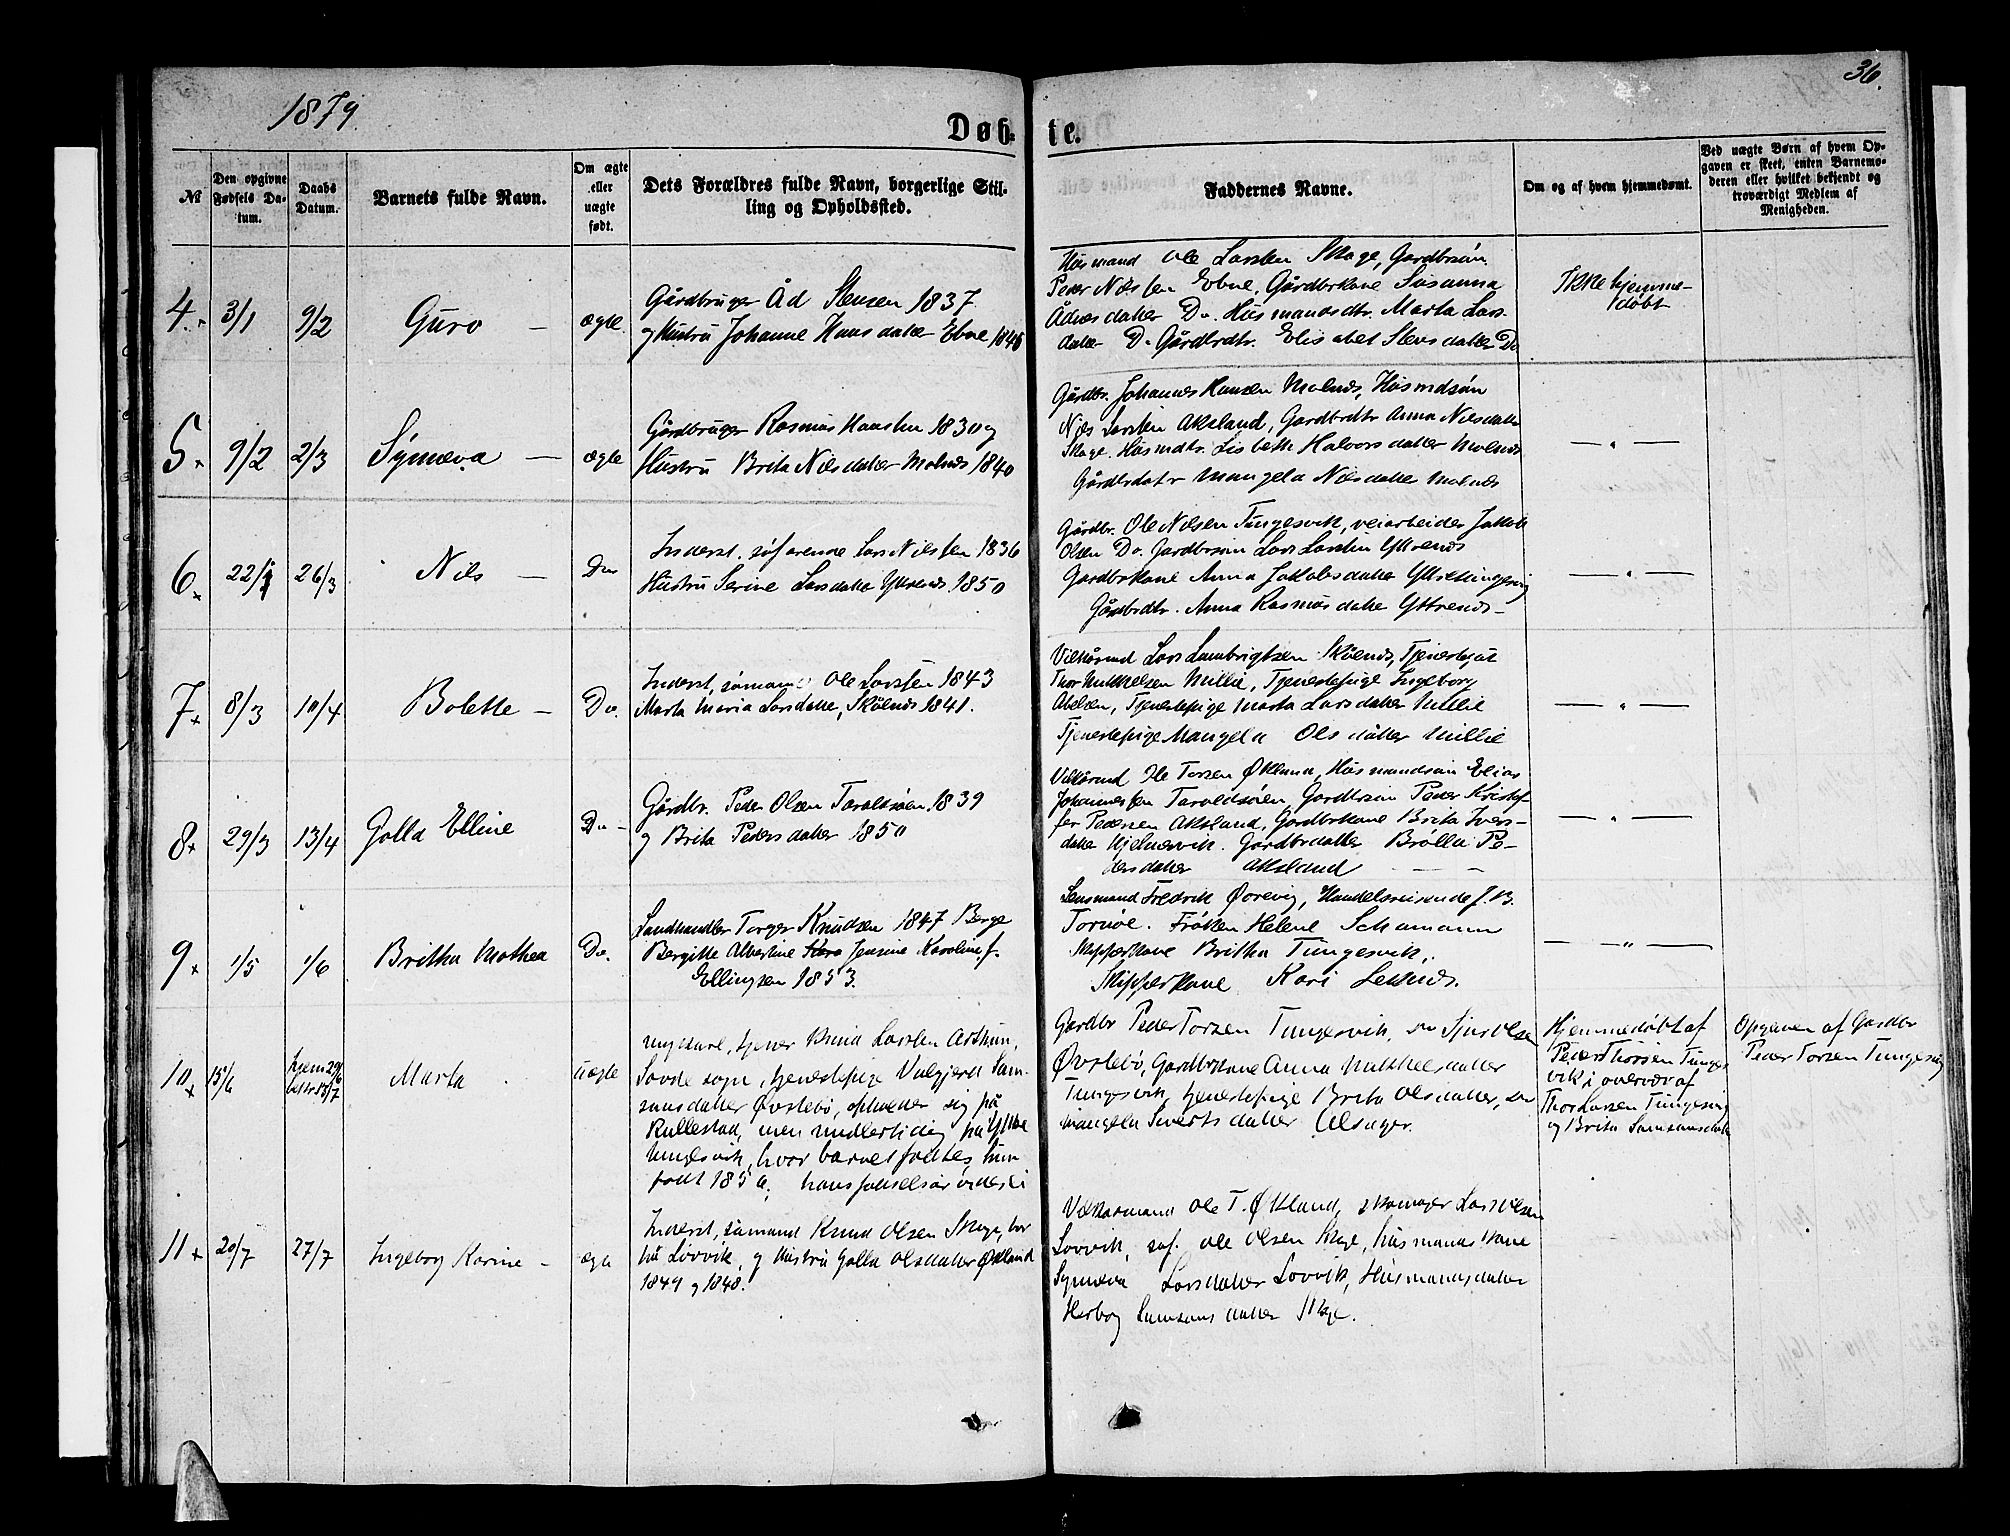 1879.
36.
Døb-
te.
№
Den opgivne Fødsels Datum.
Daabs Datum.
Barnets fulde Navn.
Om ægte eller uægte født.
Dets Forældres fulde Navn, borgerlige Stilling og Opholdssted.
Faddernes Navne.
Om og af hvem hjemmedømt.
Ved uægte Børn af hvem Opgaven er skeet, enten Barnemoderen eller hvilket bekjendt og troværdigt Medlem af Menigheden.
4. 3/1 9/2 Guro — ægte
Gårdbruger Åd Stensen 1837
og Hustru Johanne Hansdatter Ebne 1846
Husmand Ole Larsen Skage, Gardbrsön
Peder Nilssen Ebne, Gårdbrkone Susanna
Ådnesdatter Do. Husmandsdtr. Marta Lars-
datter Do Gårdbrdtr. Elisabet Stensdatter Do
Ikke hjemme-
døbt
5. 9/2 2/3 Synneva — ægte
Gårdbruger Rasmus Hansen 1830 og
Hustru Brita Nilsdatter Molnes 1840
Gårdbr. Johannes Hansen Molnes, Husmdsön
Nils Larsen Aksland, Gardbrdtr Anna Nilsdatter
Skage. Husmdtr. Lisbeth Halvorsdatter Molnes
Gårdbrdatr Mangela Nilsdatter Molnes
— „ —
6. 22/1 26/3 Nils — Do
Inderst, søfarende Lars Nilssen 1836
Hustru Serine Larsdatter Yttrenes 1850
Gårdbr. Ole Nilsen Tungesvik, veiarbeider Jakob
Olsen Do. Gardbrsön Lars Larsen Yttrenes
Gardbrkone Anna Jakobsdatter Yttretungesvig
Gårdbrdtr. Anna Rasmusdatter Yttrenes —
— „ —
7. 8/3 10/4 Bolette — Do.
Inderst, sømand Ole Larssen 1843
Marta Maria Larsdatter, Skölnes 1841.
Vilkårmd Lars Lambrigtsen Skölnes, Tjenestegut
Thor Mikkelsen Millie, Tjenestepige Ingeborg
Abelsen, Tjenestepige Marta Larsdatter Millie
Tjenestepige Mangela Olsdatter Millie
— „ —
8. 29/3 13/4 Golla Elline Do —
Gårdbr. Peder Olsen Taraldsöen 1839
og Brita Pedersdatter 1850
Vilkårmd Ole Torsen Økland, Husmandsön Elias
Johannessen Taraldsöen, Gardbrsön Peder Kristof-
fer Pedersen Aksland, Gardbrkone Brita Ivers-
datter Hjelmervik. Gårdbrdatter Brölla Pe-
dersdatter Aksland — —
— „ —
9. 1/5 1/6 Britha Mathea Do.
Landhandler Torger Knudsen 1847 Berge
Bergitte Albertine Jensine Karoline f.
Ellingsen 1853.
Lensmand Fredrik Örevig, Handelsreisende J. B.
Tornöe. Fröken Helene Schumann
Skipperkone Britha Tungesvik,
Skipperkone Kari Leknes.
— „ —
10. 15/6 hjem 29/6 13/7 Marta uægte
ungkarl, tjener Knud Larsen
Sovde sogn, tjenestepige Valgjerd Sam-
sonsdatter Øvstebö, opholder sig på
Rullestad, men midlertidig på Yttre
Tungesvik, hvor barnet födtes, hun
född 1856; hans födselsår vides ei
Gardbr Peder Torsen Tungesvik, Sjur Olsen
Øvstebö, Gardbrkone Anna Mikkelsdatter
Tungesvik, tjenestepige Brita Olsdatter,
Mangela Sivertsdatter Alsager.
Hjemmedöbt af
Peder Thorsen Tunges-
vik i overvær af
Thor Larsen Tungesvig
og Brita Samsonsdatter
Opgaven af Gardbr
Peder Torsen Tungesvig
11. 20/7 27/7 Ingeborg Karine — ægte
Inderst, sömand Knud Olsen Skage, bor
på Lovvik, og Hustru Golla Olsdatter Økland
1849 og 1848.
Vilkaarmand Ole T. Økland, skomager Lars Olsen
Lovvik, söf. Ole Olsen Skage, Husmands kone
Synneva Larsdatter Lovvik, Husmandsdatter
Herborg Samsonsdatter Skage.